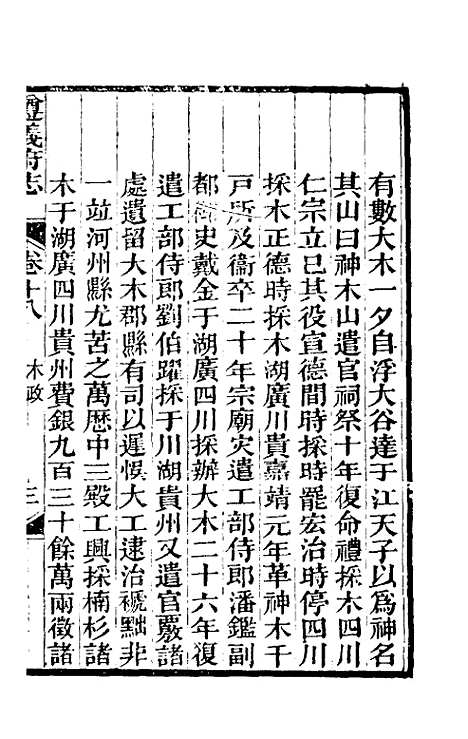 有數大木一夕自浮大谷達于江天子以爲神名
其山曰神木山遣官祠祭十年復命禮採木四川
仁宗立已其役宣德間時採時罷宏治時停四川
採木正德時採木湖廣川貴嘉靖元年革神木千
戸所及衞卒二十年宗廟灾遣工部侍郎潘鑑副
都御史戴金于湖廣四川採辦大木二十六年復
遣工部侍郎劉伯躍採于川湖貴州又遣官覈諸
處遺留大木郡縣有司以遲悞大工逮治褫黜非
一竝河州縣尤苦之萬歷中三殿工興採楠杉諸
木于湖廣四川貴州費銀九百三十餘萬兩徵諸
遵義府志
卷十八
木政
三